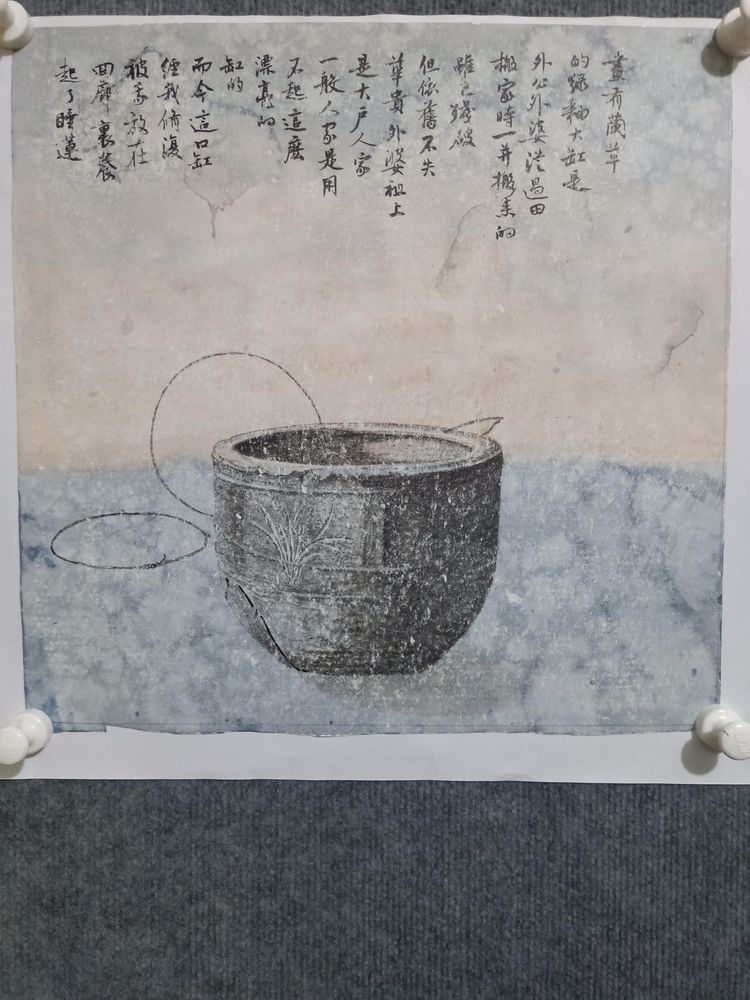 畫有蘭草
的綠釉大缸是
外公外婆從過田
搬家時一并搬来的
雖已殘破
但依舊不失
華貴外婆祖上
是大户人家
一般人家是用
不起這麽
漂亮的
缸的
而今這口缸
經我修復
被我放在
回廊裏養
起了睡蓮